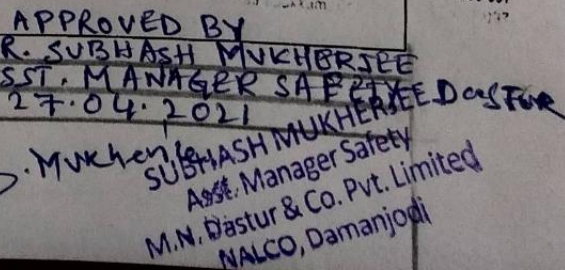 APPROVED BY
R. SUBHASH MUKHERJEE
SST. MANAGER SAFETY
27.04.2021
S. Mukherjee
SUBHASH MUKHERJEE
Asst. Manager Safety
M.N. Dastur & Co. Pvt. Limited
NALCO, Damanjodi